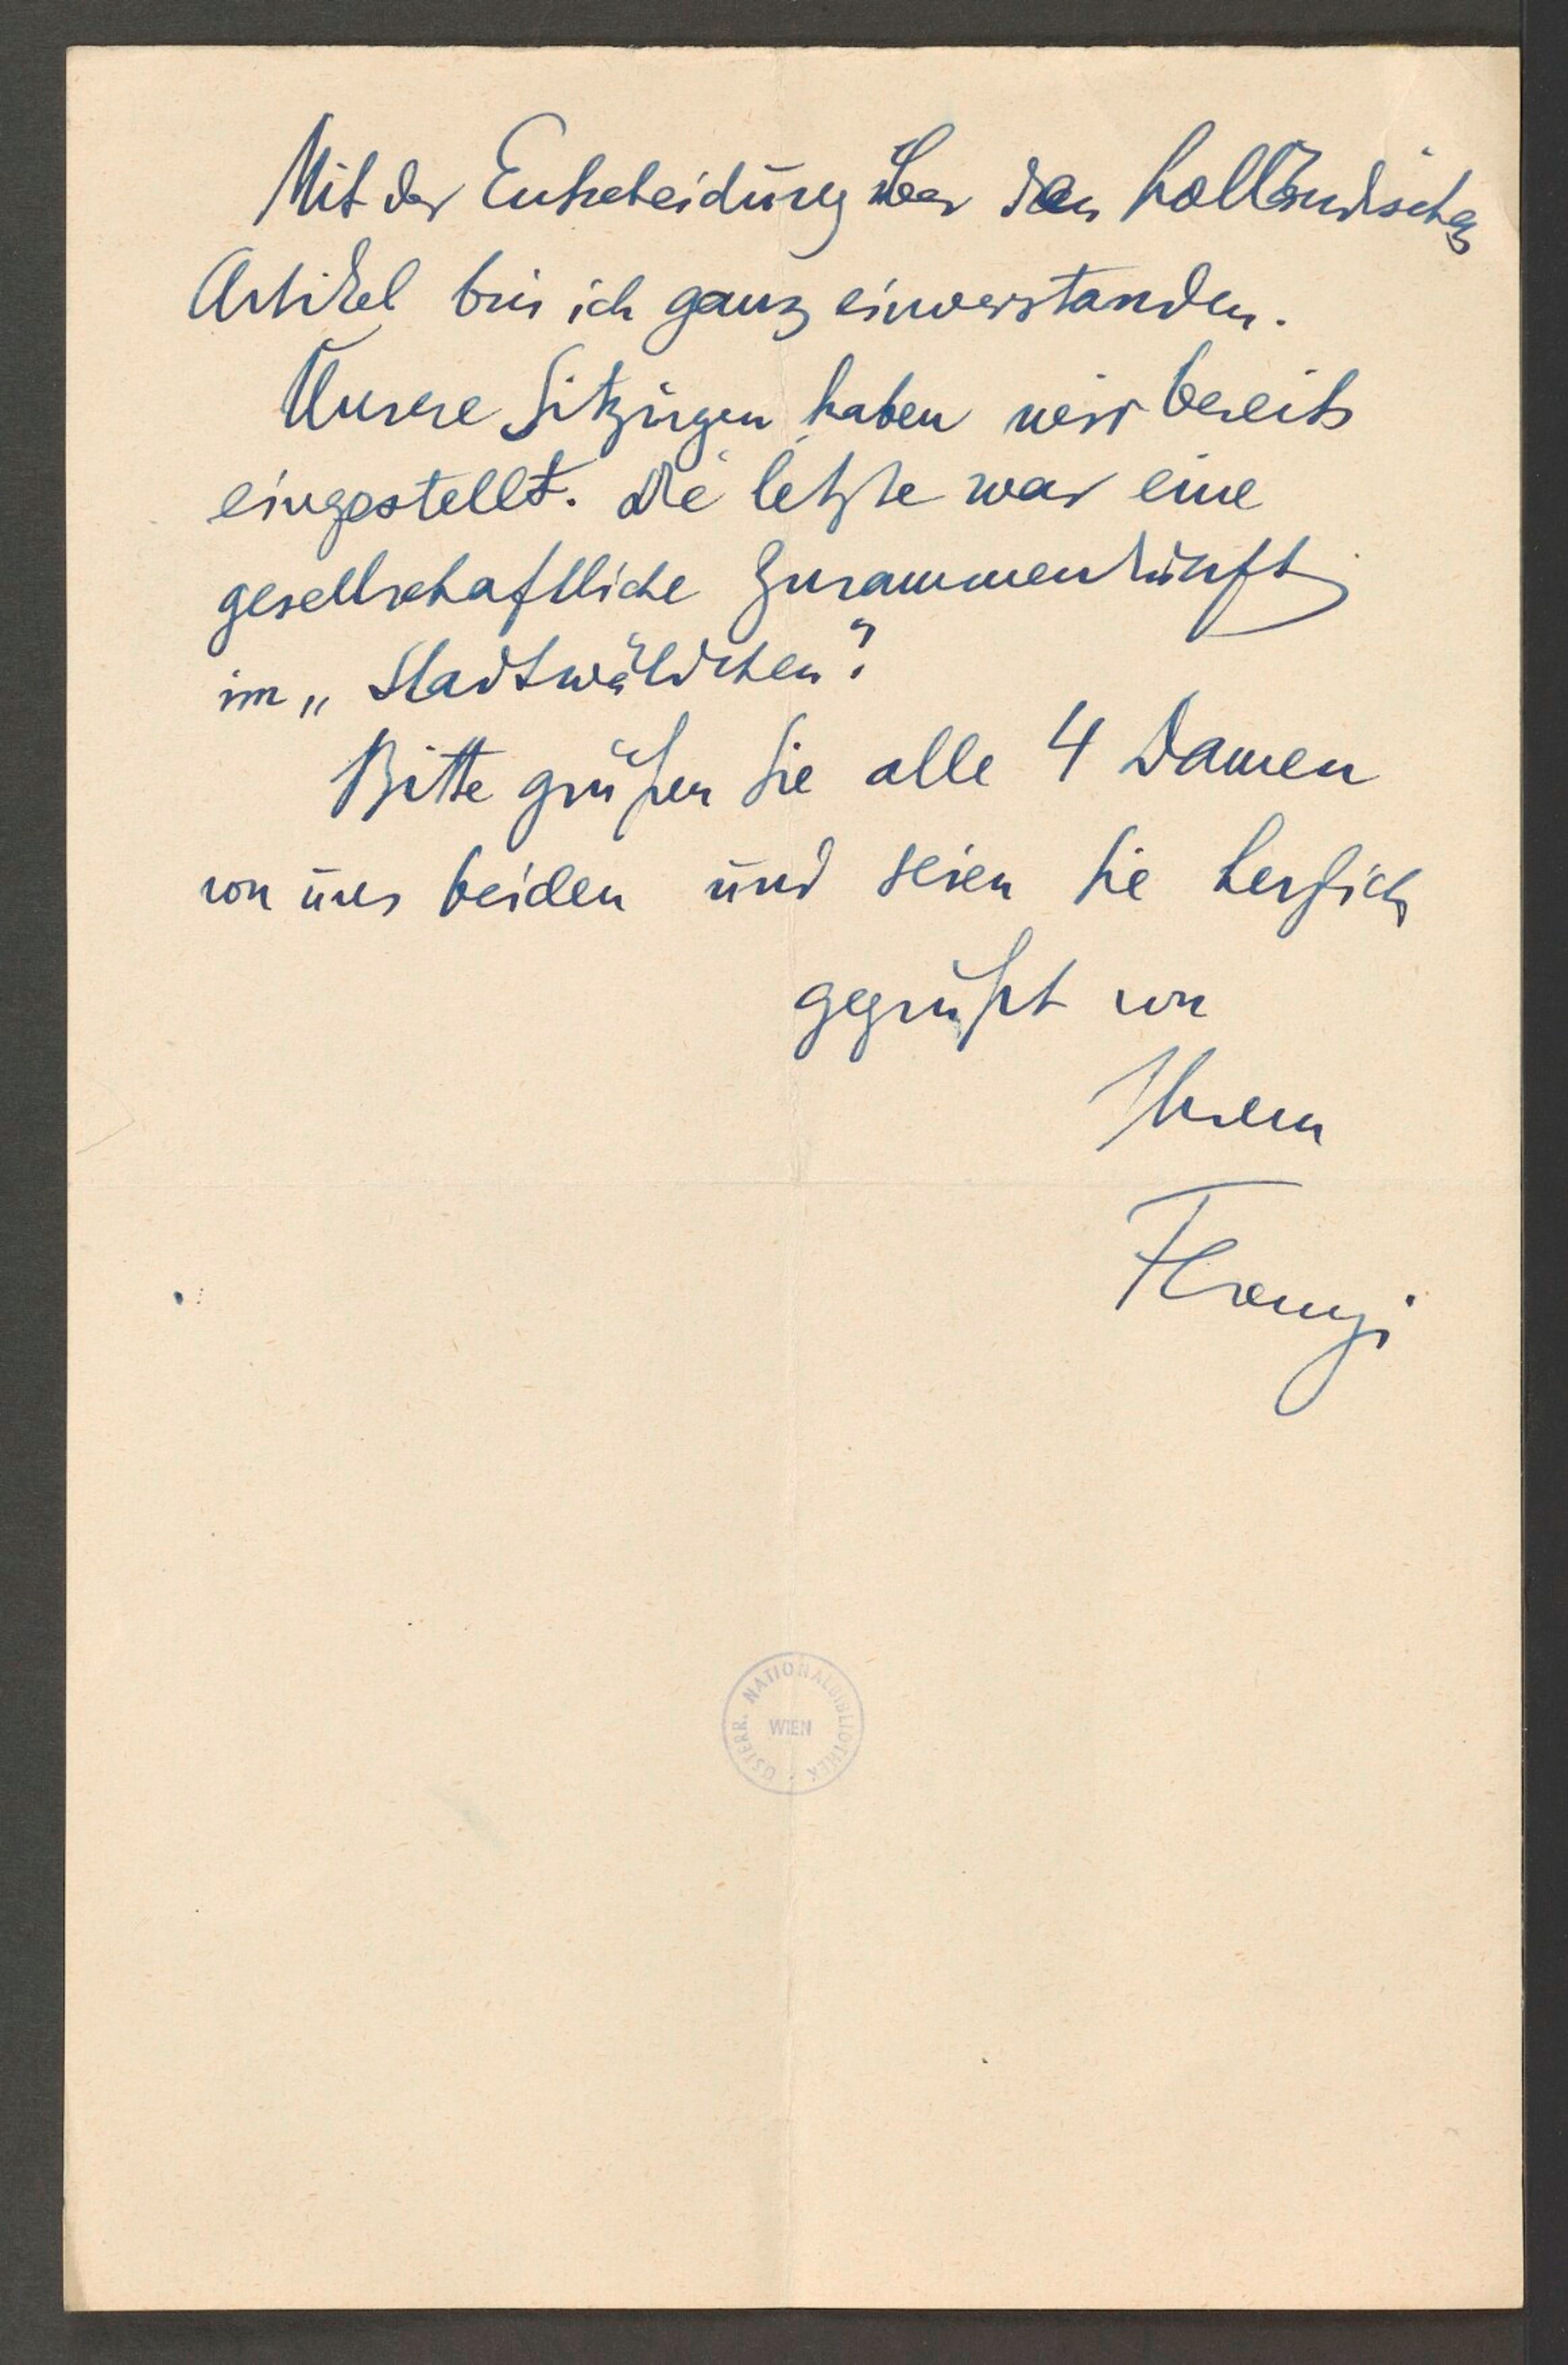 Mit der Entscheidung über den holländischen
Artikel bin ich ganz einverstanden.
Unsere Sitzungen haben wir bereits
eingestellt. Die letzte war eine
gesellschaftliche Zusammenkunft
im „Stadtwäldchen“.
Bitte grüßen Sie alle 4 Damen
von uns beiden und seien Sie herzlich
gegrüßt von
Ihrem
Hollos
ÖSTERR. NATIONALBIBLIOTHEK
WIEN